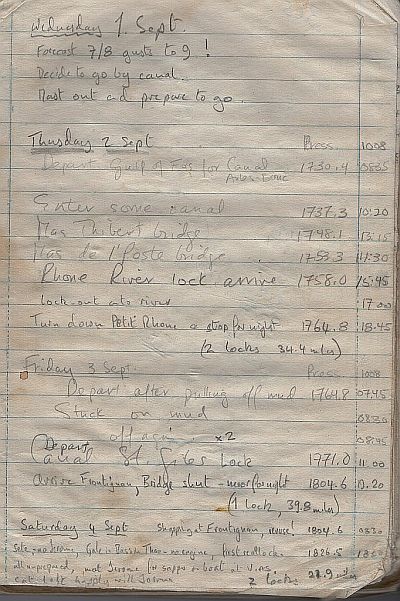 Wednesday 1 Sept.
Forecast 7/8 gusts to 9 !
Decide to go by canal.
Mast out and prepare to go.
Thursday 2 Sept Press. 1008
Depart Gulf of Fos for Canal 1730.4 0835
Arles-Bouc
Enter some canal 1737.3 10:20
Mas Thibert bridge 1748.1 13:15
Mas de l'Poste bridge 1753.3
Rhone River lock arrive 1758.0 15:45
lock-out into river 17 00
Turn down Petit Rhone & stop for night 1764.8 18.45
(2 locks 34.4 miles)
Friday 3 Sept. Press. 1008
Depart after pulling off mud 1764.8 07.45
Stuck on mud 08:30
off again x2 08:45
Depart
Canal St. Giles Lock 1771.0 11.00
Arrive Frontignan, Bridge shut - moor for night 1804.6
(1 lock, 39.8 miles)
Saturday 4 Sept Shopping at Frontignan, 1804.6 0830
1826.5
met Jerome for supper on boat at
with Jerome 2 locks